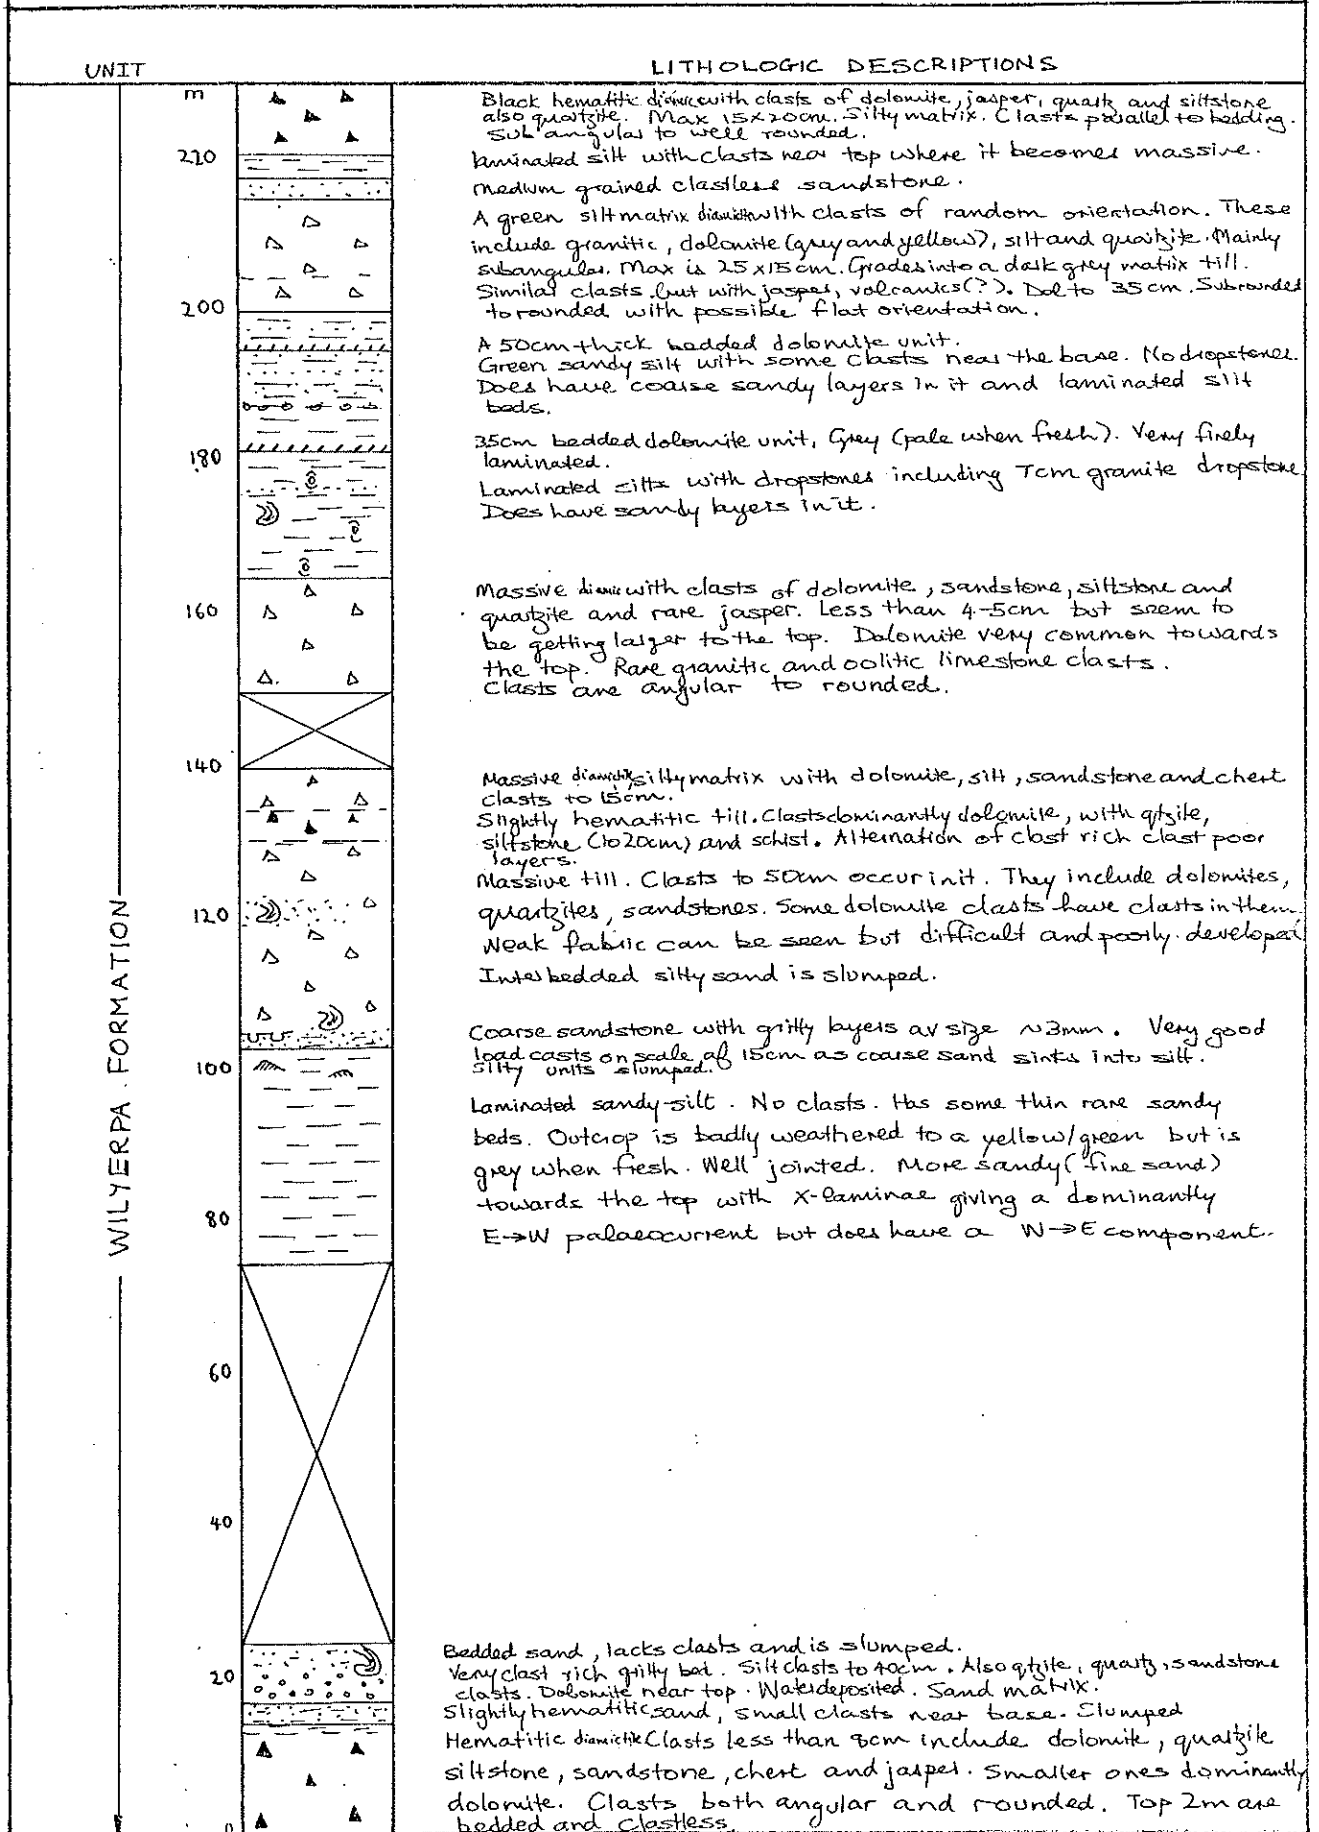 UNIT
LITHOLOGIC DESCRIPTIONS
m
Black hematitic with clasts of dolomite, jasper, quartz and siltstone
also quartzite. Max 15x20cm. Silty matrix. Clasts parallel to bedding.
Sub angular to well rounded.
220
laminated silt with clasts near top where it becomes massive.
medium grained clastless sandstone.
A green silt matrix diamictite with clasts of random orientation. These
include granitic, dolomite (grey and yellow), silt and quartzite. Mainly
subangular. Max is 25x15cm. Grades into a dark grey matrix till.
Similar clasts but with jasper, volcanics(?). Dol to 35cm. Subrounded
to rounded with possible flat orientation.
200
A 50cm thick bedded dolomite unit.
Green sandy silt with some clasts near the base. No dropstones.
Does have coarse sandy layers in it and laminated silt
beds.
35cm bedded dolomite unit, Grey (pale when fresh). Very finely
laminated.
180
Laminated silts with dropstones including 7cm granite dropstone
Does have sandy layers in it.
Massive with clasts of dolomite, sandstone, siltstone and
160
quartzite and rare jasper. Less than 4-5cm but seem to
be getting larger to the top. Dolomite very common towards
the top. Rare granitic and oolitic limestone clasts.
Clasts are angular to rounded.
140
Massive diamictite silty matrix with dolomite, silt, sandstone and chert
clasts to 15cm.
Slightly hematitic till. Clasts dominantly dolomite, with qtzite,
siltstone (to 20cm) and schist. Alternation of clast rich clast poor
layers.
Massive till. Clasts to 50cm occur in it. They include dolomites,
120
quartzites, sandstones. Some dolomite clasts have clasts in them.
Weak fabric can be seen but difficult and poorly developed
Interbedded silty sand is slumped.
WILYERPA FORMATION
Coarse sandstone with gritty layers av size ~3mm. Very good
load casts on scale of 15cm as coarse sand sinks into silt.
100
Silty units slumped.
Laminated sandy-silt. No clasts. Has some thin rare sandy
beds. Outcrop is badly weathered to a yellow/green but is
grey when fresh. Well jointed. More sandy (fine sand)
towards the top with X-laminae giving a dominantly
80
E→W palaeocurrent but does have a W→E component.
60
40
Bedded sand, lacks clasts and is slumped.
20
Very clast rich gritty bed. Silt clasts to 40cm. Also qtzite, quartz, sandstone
clasts. Dolomite near top. Water deposited. Sand matrix.
Slightly hematitic sand, small clasts near base. Slumped
Hematitic diamictite Clasts less than 8cm include dolomite, quartzite
siltstone, sandstone, chert and jasper. Smaller ones dominantly
dolomite. Clasts both angular and rounded. Top 2m are
0
bedded and clastless.